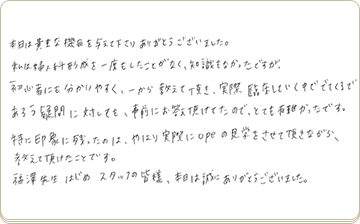 本日は貴重な機会を与えて下さりありがとうございました。
私は婦人科形成を一度もしたことがなく、知識もなかったですが、
初心者にも分かりやすく、一から教えて頂き、実際 臨床していく中ででてくるで
あろう疑問に対しても、事前にお答え頂けてたので、とても有難かったです。
特に印象に残ったのは、やはり実際にopeの見学をさせて頂きながら、
教えて頂けたことです。
福澤先生はじめ スタッフの皆様、本日は誠にありがとうございました。